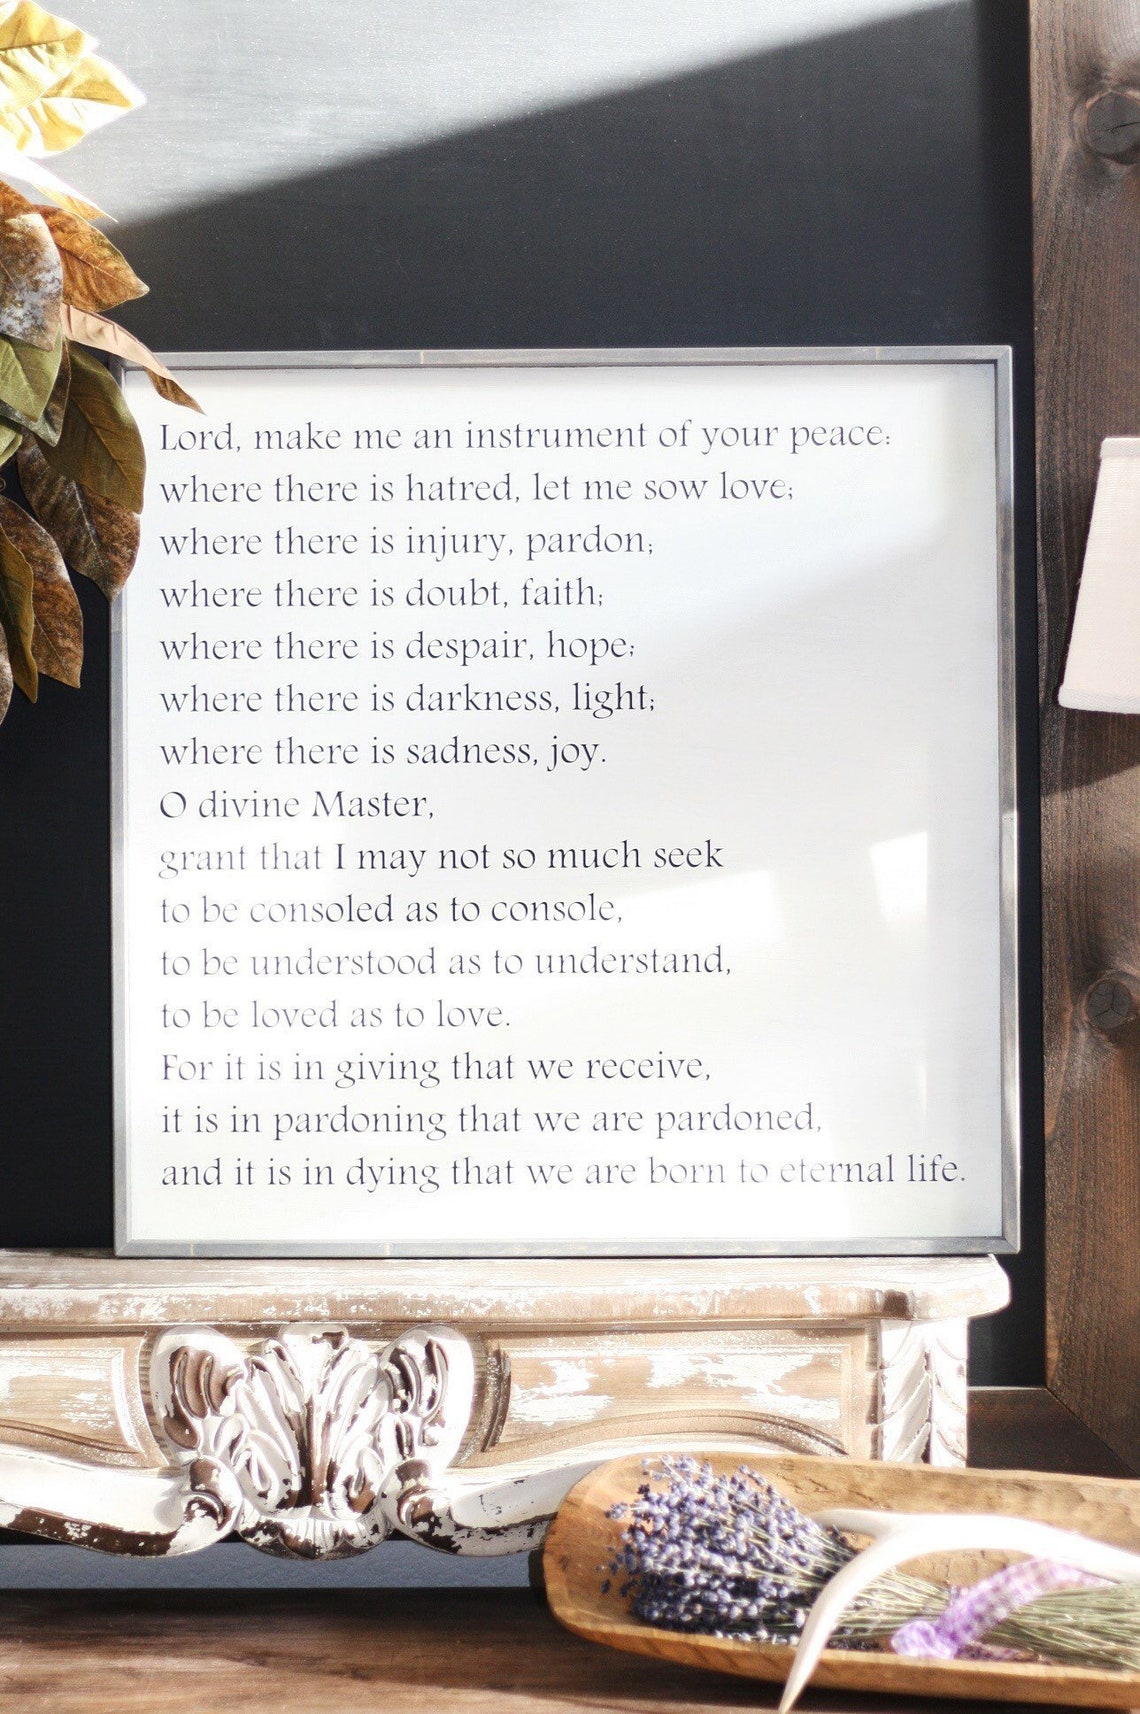 Lord, make me an instrument of your peace:
where there is hatred, let me sow love;
where there is injury, pardon;
where there is doubt, faith;
where there is despair, hope;
where there is darkness, light;
where there is sadness, joy.
O divine Master,
grant that I may not so much seek
to be consoled as to console,
to be understood as to understand,
to be loved as to love.
For it is in giving that we receive,
it is in pardoning that we are pardoned,
and it is in dying that we are born to eternal life.